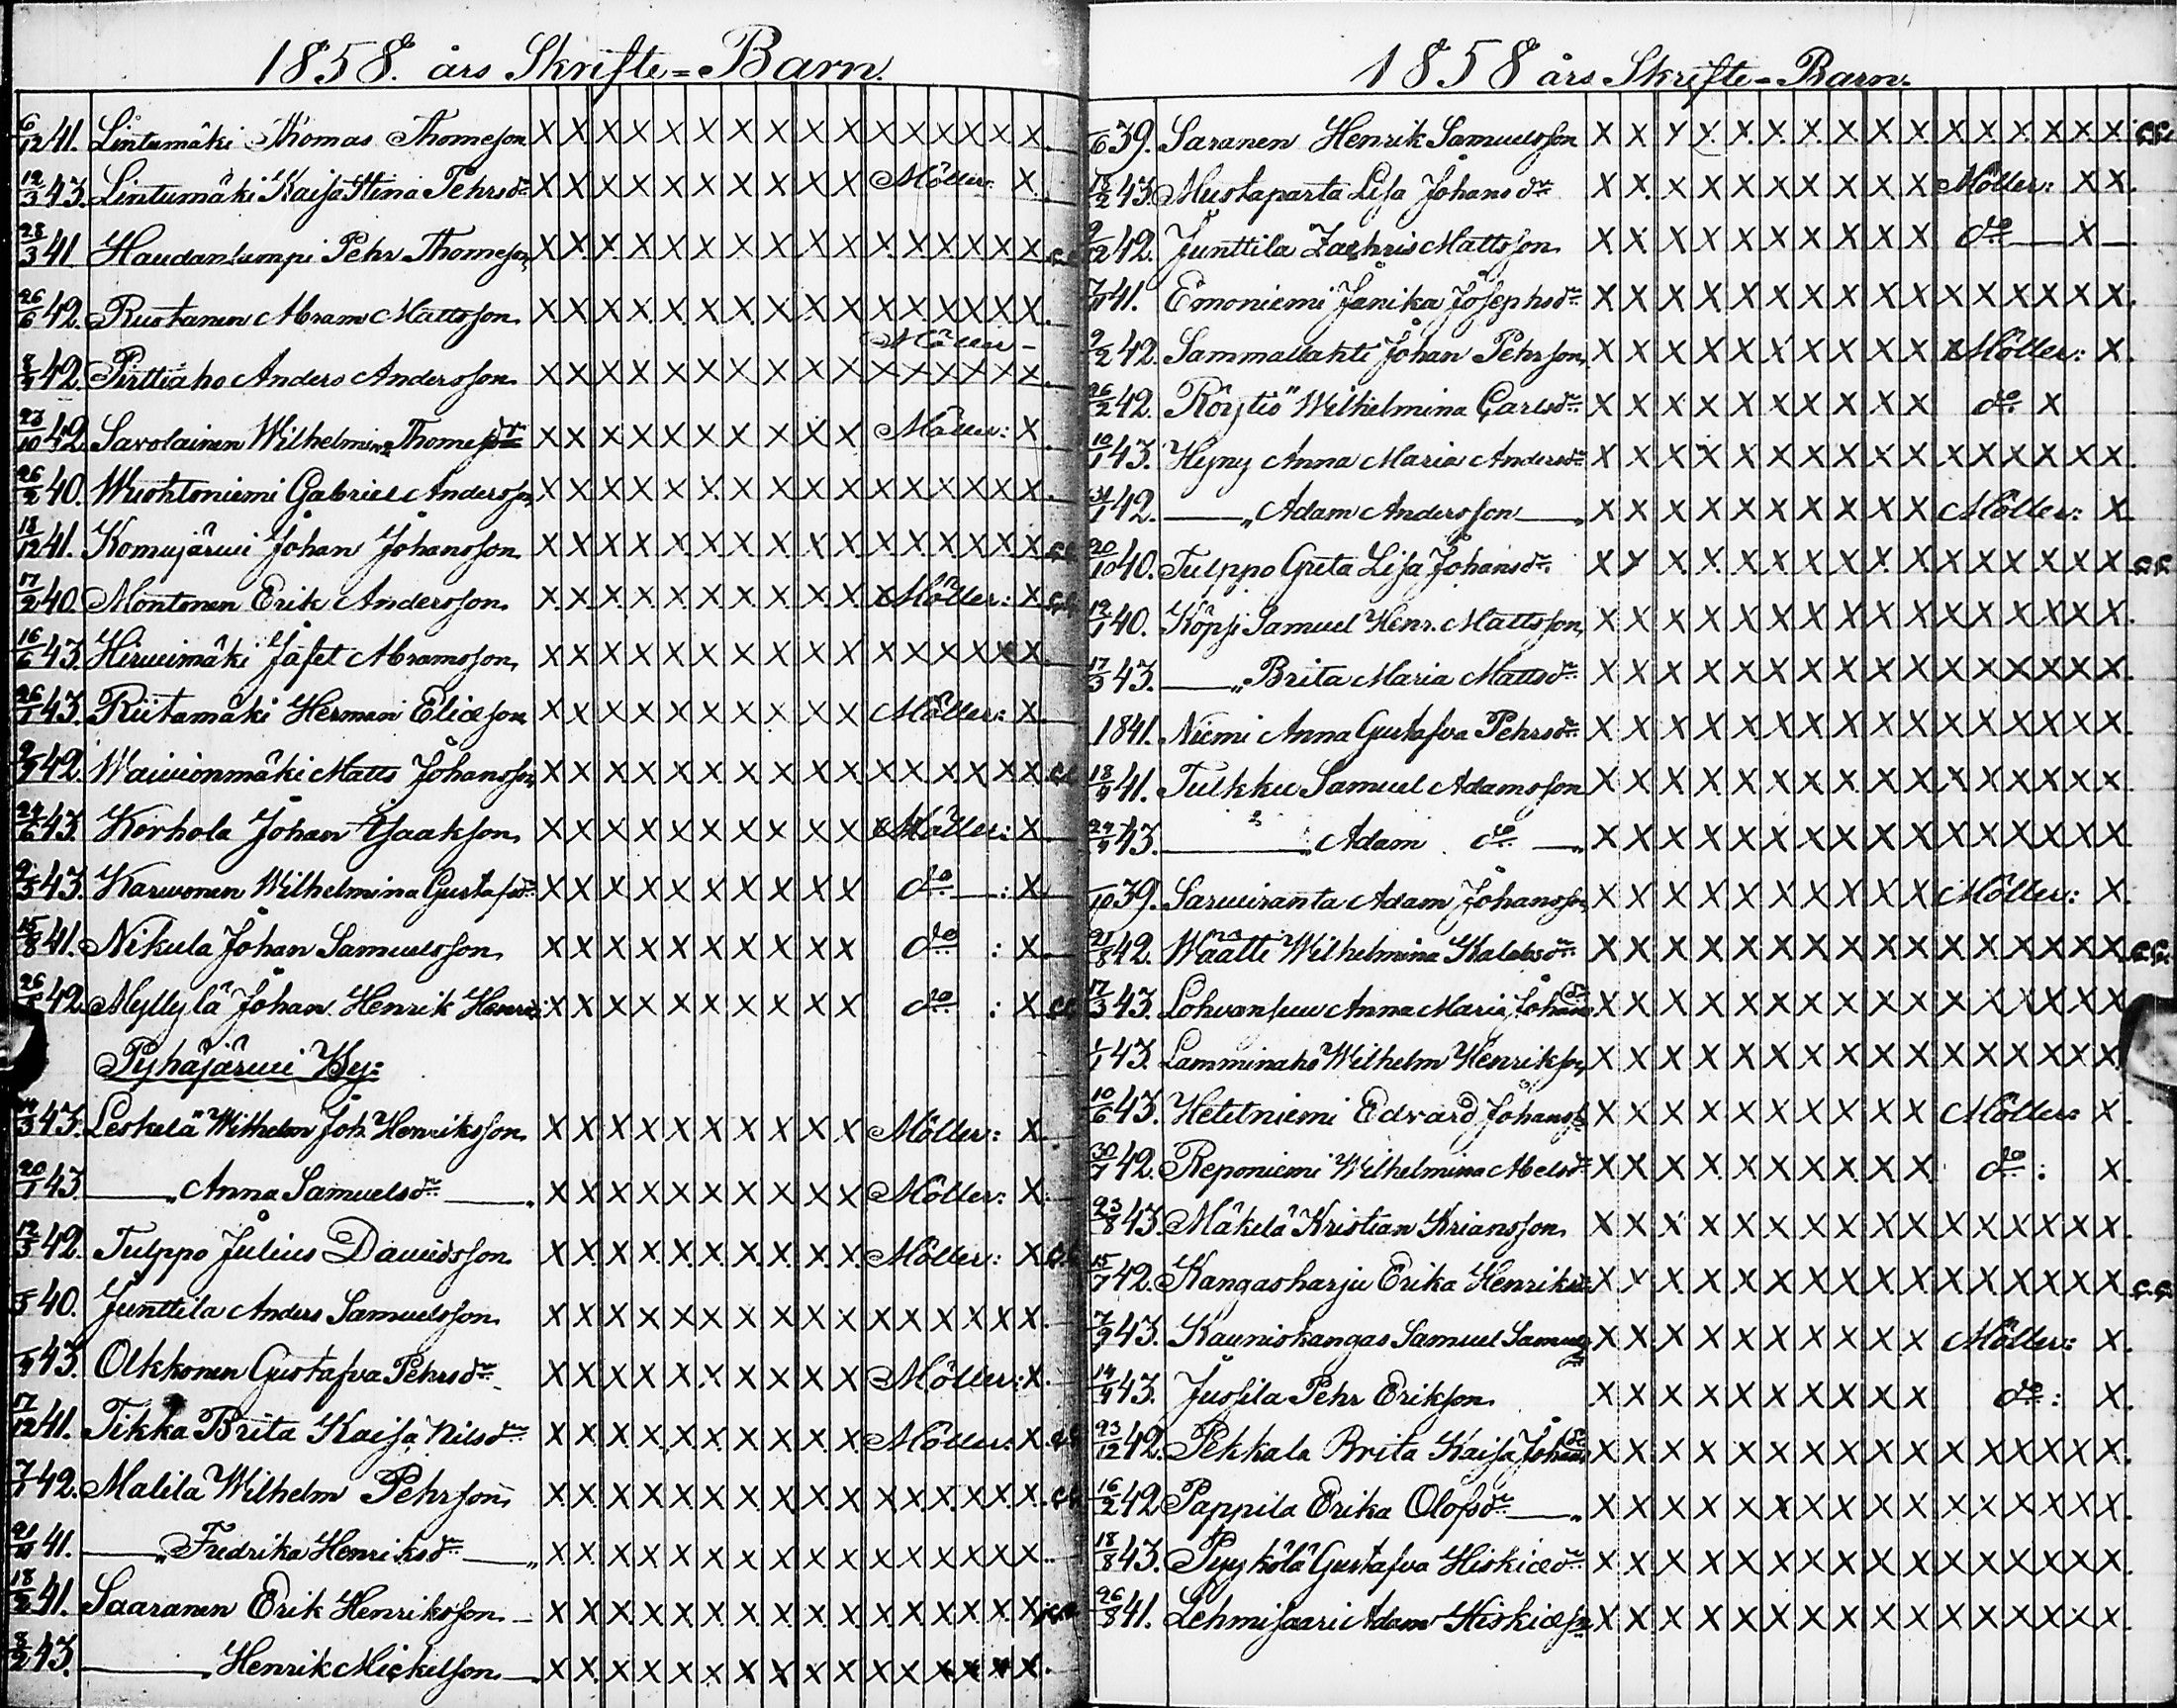 1858. års Skrifte=Barn.
6/12 41. Lintumäki Thomas Thomeson X X X X X X X X X X X X X X X X
12/3 43. Lintumäki Kaisa Stina Pehrsdr X X X X X X X X X X Möller: X
28/3 41 Haudanlampi Pehr Thomeson X X X X X X X X X X X X X X X X
26/6 42. Ruotanen Abram Mattsson X X X X X X X X X X X X X X X X
Möller
42. Pirttiaho Anders Andersson X X X X X X X X X X X X X X X X
23/10 42 Savolainen Wilhelmina Thomesdr X X X X X X X X X X Möller: X
26/2 40. Wuohtoniemi Gabriel Andersson X X X X X X X X X X X X X X X X
18/12 41. Komujärwi Johan Johansson X X X X X X X X X X X X X X X X
17/2 40 Montonen Erik Andersson X X X X X X X X X X Möller: X
16/6 43. Hirwimäki Jafet Abramsson X X X X X X X X X X X X X X X X
26/1 43. Riitamäki Herman Eliæson X X X X X X X X X X Möller: X
42. Waiwionmäki Matts Johansson X X X X X X X X X X X X X X X X
24/6 43 Korhola Johan Isaakson X X X X X X X X X X Möller: X
43. Karwonen Wilhelmina Gustafsdr X X X X X X X X X X do : X
15/8 41. Nikula Johan Samuelsson X X X X X X X X X X do : X
42 Myllylä Johan Henrik X X X X X X X X X X do : X
Pyhäjärwi By:
43. Leskelä Wilhelm Joh. Henriksson X X X X X X X X X X Möller: X
20/1 43 " Anna Samuelsdr " X X X X X X X X X X Möller: X
12/3 42. Tulppo Julius Dawidsson X X X X X X X X X X Möller: X
40. Junttila Anders Samuelsson X X X X X X X X X X X X X X X X
43. Olkkonen Gustafva Pehrsdr X X X X X X X X X X Möller: X
17/12 41. Tikka Brita Kaisa Nilsdr X X X X X X X X X X Möller: X
42. Malila Wilhelm Pehrson X X X X X X X X X X X X X X X X
41. " Fredrika Henriksdr " X X X X X X X X X X X X X X X X
18/2 41. Saaranen Erik Henriksson X X X X X X X X X X X X X X X X
8/2 43. " Henrik Mickelson X X X X X X X X X X X X X X X X
1858 års Skrifte=Barn.
/6 39. Saranen Henrik Samuelsson X X X X X X X X X X X X X X X X
43. Mustaparta Lisa Johansdr X X X X X X X X X X Möller: X X
42. Junttila Zachris Mattsson X X X X X X X X X X do X
41. Emoniemi Janika Josephsdr X X X X X X X X X X X X X X X X
9/2 42. Sammallahti Johan Pehrson X X X X X X X X X X Möller: X
26/2 42. Röytiö Wilhelmina Carlsdr X X X X X X X X X X do X
10/1 43. Hyny Anna Maria Andersdr X X X X X X X X X X X X X X X X
31/1 42. " Adam Andersson " X X X X X X X X X X Möller: X
20/10 40. Tulppo Greta Lisa Johansdr X X X X X X X X X X X X X X X X
12/1 40. Köpsi Samuel Henr. Mattsson X X X X X X X X X X X X X X X X
17/3 43. " Brita Maria Mattsdr X X X X X X X X X X X X X X X X
1841. Niemi Anna Gustafva Pehrsdr X X X X X X X X X X X X X X X X
18/9 41. Tulkku Samuel Adamsson X X X X X X X X X X X X X X X X
43. " Adam do " X X X X X X X X X X X X X X X X
/10 39. Sarwiranta Adam Johansson X X X X X X X X X X Möller: X
21/8 42. Wäätti Wilhelmina Kalebsdr X X X X X X X X X X X X X X X X
17/3 43. Lohvansuu Anna Maria Johansdr X X X X X X X X X X X X X X X X
1/1 43. Lamminaho Wilhelm Henrikson X X X X X X X X X X X X X X X X
10/6 43. Hetetniemi Edvard Johanss X X X X X X X X X X Möller: X
30/7 42. Reponiemi Wilhelmina Abelsdr X X X X X X X X X X do : X
23/8 43. Mäkelä Kristian Kriansson X X X X X X X X X X X X X X X X
15/7 42. Kangasharju Erika Henriksdr X X X X X X X X X X X X X X X X
7/9 43. Kauniskangas Samuel X X X X X X X X X X Möller: X
43. Jussila Pehr Erikson X X X X X X X X X X do : X
23/12 42. Pekkala Brita Kaisa Johansdr X X X X X X X X X X X X X X X X
16/2 42 Pappila Erika Olofsdr " X X X X X X X X X X X X X X X X
18/8 43. Pyykölä Gustafva Hiskiædr X X X X X X X X X X X X X X X X
26/8 41. Lehmisaari Adam Hiskiæson X X X X X X X X X X X X X X X X